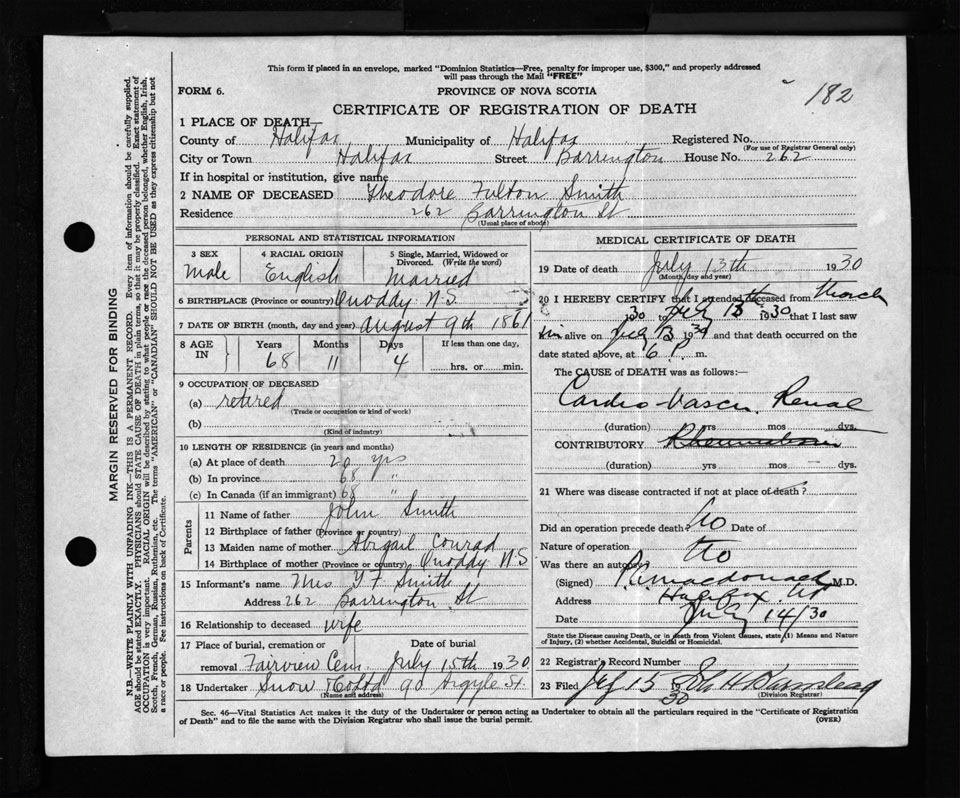 This form if placed in an envelope, marked "Dominion Statistics—Free, penalty for improper use, $300," and properly addressed
will pass through the Mail "FREE"
182
FORM 6. PROVINCE OF NOVA SCOTIA
CERTIFICATE OF REGISTRATION OF DEATH
1 PLACE OF DEATH—
County of Halifax Municipality of Halifax Registered No.
(For use of Registrar General only)
City or Town Halifax Street Barrington House No. 262
If in hospital or institution, give name
2 NAME OF DECEASED Theodore Fulton Smith
Residence 262 Barrington St
(Usual place of abode)
PERSONAL AND STATISTICAL INFORMATION
3 SEX 4 RACIAL ORIGIN 5 Single, Married, Widowed or
Divorced. (Write the word)
Male English Married
6 BIRTHPLACE (Province or country) Quoddy N.S.
7 DATE OF BIRTH (month, day and year) August 9th 1861
8 AGE IN Years Months Days If less than one day,
68 11 4 hrs. or min.
9 OCCUPATION OF DECEASED
(a) retired
(Trade or occupation or kind of work)
(b)
(Kind of industry)
10 LENGTH OF RESIDENCE (in years and months)
(a) At place of death 20 yrs
(b) In province 68 "
(c) In Canada (if an immigrant) 68 "
Parents
11 Name of father John Smith
12 Birthplace of father (Province or country)
13 Maiden name of mother Abigail Conrad
14 Birthplace of mother (Province or country) Quoddy N S
15 Informant's name Mrs T F Smith
Address 262 Barrington St
16 Relationship to deceased wife
17 Place of burial, cremation or Date of burial
removal Fairview Cem. July 15th 1930
18 Undertaker Snow & Co Ltd 90 Argyle St.
(Name and address)
MEDICAL CERTIFICATE OF DEATH
19 Date of death July 13th 1930
(Month, day and year)
20 I HEREBY CERTIFY that I attended deceased from March
30 to July 13th 1930 that I last saw
him alive on July 13 1930 and that death occurred on the
date stated above, at 6 P. m.
The CAUSE of DEATH was as follows:—
Cardio Vascu. Renal
(duration) yrs mos dys.
CONTRIBUTORY Rheumatism
(duration) yrs mos dys.
21 Where was disease contracted if not at place of death?
Did an operation precede death? No Date of
Nature of operation
Was there an autopsy? No
(Signed) Macdonald M.D.
Address Halifax NS
Date July 14/30
State the Disease causing Death, or in death from Violent Causes, state (1) Means and Nature
of Injury, (2) whether Accidental, Suicidal or Homicidal.
22 Registrar's Record Number
23 Filed July 15 1930
(Division Registrar)
Sec. 46—Vital Statistics Act makes it the duty of the Undertaker or person acting as Undertaker to obtain all the particulars required in the "Certificate of Registration
of Death" and to file the same with the Division Registrar who shall issue the burial permit.
(OVER)
MARGIN RESERVED FOR BINDING
N.B.—WRITE PLAINLY WITH UNFADING INK—THIS IS A PERMANENT RECORD. Every item of information should be carefully supplied.
AGE should be stated EXACTLY. PHYSICIANS should STATE CAUSE OF DEATH in plain terms, so that it may be properly classified. Exact statement of
OCCUPATION is very important. RACIAL ORIGIN will be described by stating to what people or race the deceased person belonged, whether English, Irish,
Scotch, French, German, Russian, Ruthenian, etc. The terms "AMERICAN" or "CANADIAN" SHOULD NOT BE USED as they express citizenship but not
a race or people. See instructions on back of Certificate.